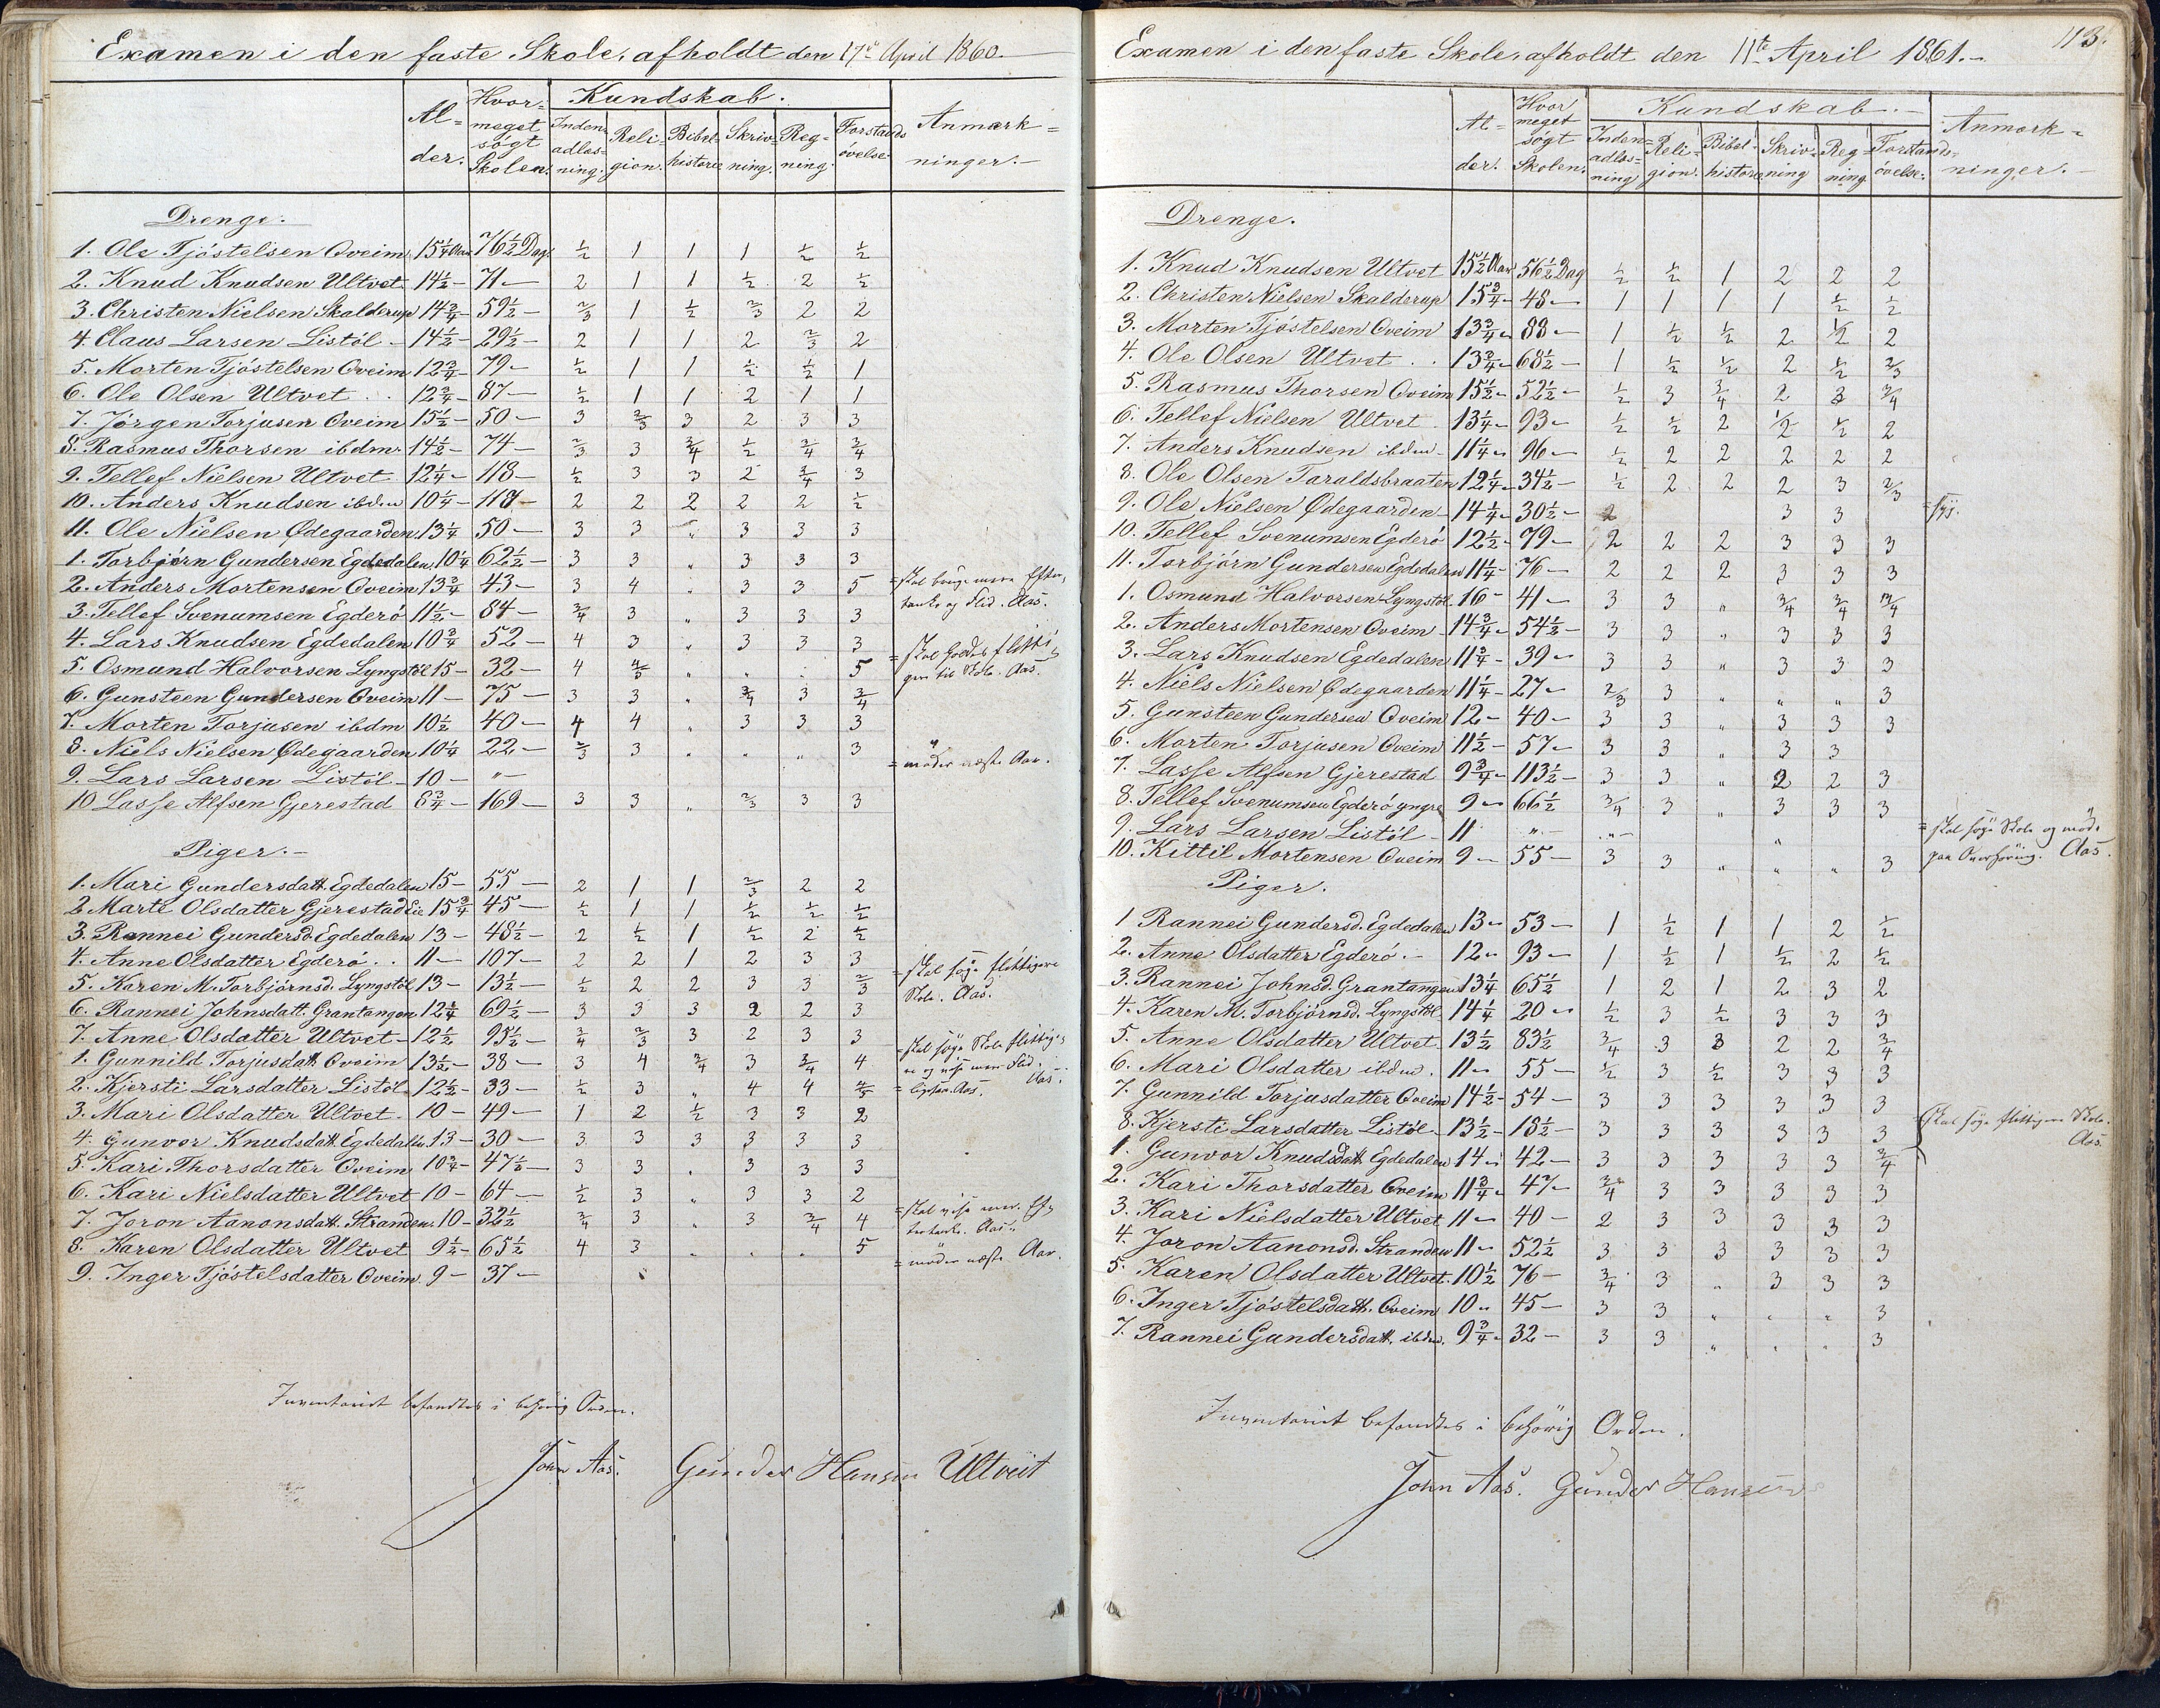 Examen i den faste Skole, afholdt den 17de April 1860.
Al-der. Hvor-meget søgt Skolen. Kundskab. Anmærk-ninger.
Inden-adlæs-ning. Reli-gion. Bibel-historie Skriv-ning. Reg-ning. Forstands øvelse
Drenge.
1. Ole Tjöstelsen Oveim 15 1/4 Aar 76 1/2 Dag 1/2 1 1 1 1/2 1/2
2. Knud Knudsen Ultvet 14 1/2 - 71 - 2 1 1 1/2 2 1/2
3. Christen Nielsen Skalderup 14 3/4 - 59 1/2 - 2/3 1 1/2 2/3 2 2
4. Claus Larsen Listöl 14 1/2 - 29 1/2 - 2 1 1 2 2/3 2
5. Morten Tjöstelsen Oveim 12 3/4 - 79 - 1/2 1 1 1/2 1/2 1
6. Ole Olsen Ultvet . . 12 3/4 - 87 - 1/2 1 1 2 1 1
7. Jörgen Torjusen Oveim 15 1/2 - 50 - 3 2/3 3 2 3 3
8. Rasmus Thorsen ibdm. 14 1/2 - 74 - 2/3 3 3/4 1/2 3/4 3/4
9. Tellef Nielsen Ultvet 12 1/4 - 118 - 1/2 3 3 2 3/4 3
10. Anders Knudsen ibdm 10 1/4 - 118 - 2 2 2 2 2 1/2
11. Ole Nielsen Ødegaarden 13 1/4 50 - 3 3 " 3 3 3
1. Torbjörn Gundersen Egdedalen 10 1/4 62 1/2 - 3 3 " 3 3 3
2. Anders Mortensen Oveim 13 3/4 43 - 3 4 " 3 3 5 = skal bruge mere Efter-
tanke og Flid. Aas.
3. Tellef Svenumsen Egderö 11 1/2 - 84 - 3/4 3 " 3 3 3
4. Lars Knudsen Egdedalen 10 3/4 52 - 4 3 " 3 3 3
5. Osmund Halvorsen Lyngstöl 15 - 32 - 4 4/5 " " . 5 = skal holdes flitti-
gere til Skole. Aas.
6. Gunsteen Gundersen Oveim 11 - 75 - 3 3 " 3/4 3 3/4
7. Morten Torjusen ibdm 10 1/2 40 - 4 4 " 3 3 3
8. Niels Nielsen Ødegaarden 10 1/4 22 - 2/3 3 " " " 3
9. Lars Larsen Listöl - 10 - " - = møder næste Aar.
10 Lasse Alfsen Gjerestad 8 3/4 - 169 - 3 3 " 2/3 3 3
Piger.
1. Mari Gundersdatt. Egdedalen 15 - 55 - 2 1 1 2/3 2 2
2 Marte Olsdatter Gjerestad Eie 15 3/4 45 - 1/2 1 1 1/2 1/2 1/2
3. Rannei Gundersd. Egdedalen 13 - 48 1/2 - 2 1/2 1 1/2 2 1/2
4. Anne Olsdatter Egderö . . 11 - 107 - 2 2 1 2 3 3
5. Karen M. Torbjörnsd. Lyngstöl 13 - 13 1/2 - 1/2 2 2 3 3 2/3 = skal søge flittigere
Skole. Aas.
6. Rannei Johnsdatt. Grantangen 12 1/4 69 1/2 - 3 3 3 2 2 3
7. Anne Olsdatter Ultvet - 12 1/2 95 1/2 - 3/4 2/3 3 2 3 3
1. Gunnild Torjusdatt. Oveim 13 1/2 - 38 - 3 4 3/4 3 3/4 4 = skal søge Skole flittige-
re og vise mere Flid. Aas.
2. Kjersti Larsdatter Listöl 12 1/2 - 33 - 1/2 3 " 4 4 4/5 = ligesaa. Aas.
3. Mari Olsdatter Ultvet - 10 - 49 - 1 2 1/2 3 3 2
4. Gunvor Knudsdatt. Egdedalen 13 - 30 - 3 3 3 3 3 3
5. Kari Thorsdatter Oveim 10 3/4 - 47 1/2 - 3 3 . 3 3 3
6. Kari Nielsdatter Ultvet 10 - 64 - 1/2 3 " 3 3 2
7. Joron Aanonsdatt. Stranden 10 - 32 1/2 3/4 3 " 3 3/4 4 = skal vise mere Ef-
tertanke. Aas.
8. Karen Olsdatter Ultvet 9 1/2 - 65 1/2 4 3 . . . 5
9. Inger Tjöstelsdatter Oveim 9 - 37 - = møder næste Aar.
Inventariet befandtes i behörig Orden.
John Aas. Gunder Hansen Ultveit
113.
Examen i den faste Skole, afholdt den 11te April 1861.
Al-der. Hvor meget søgt Skolen. Kundskab. Anmærk-ninger.
Inden-adlæs-ning Reli-gion. Bibel-historie Skriv-ning Reg-ning. Forstands-øvelse.
Drenge.
1. Knud Knudsen Ultvet 15 1/2 Aar 56 1/2 Dag 1/2 1/2 1 2 2 2
2. Christen Nielsen Skalderup 15 3/4 - 48 - 1 1 1 1 1/2 1/2
3. Morten Tjöstelsen Oveim 13 3/4 - 88 - 1 1/2 1/2 2 1/2 2
4. Ole Olsen Ultvet . . 13 3/4 - 68 1/2 - 1 1/2 1/2 2 1/2 2/3
5. Rasmus Thorsen Oveim 15 1/2 - 52 1/2 - 1/2 3 3/4 2 3 3/4
6. Tellef Nielsen Ultvet 13 1/4 - 93 - 1/2 1/2 2 1/2 1/2 2
7. Anders Knudsen ibdm - 11 1/4 - 96 - 1/2 2 2 2 2 2
8. Ole Olsen Taraldsbraaten 12 1/4 - 34 1/2 - 1/2 2 2 2 3 2/3
9. Ole Nielsen Ødegaarden - 14 1/4 - 30 1/2 - 2 3 3
10. Tellef Svenumsen Egderö 12 1/2 - 79 - 2 2 2 3 3 3
11. Torbjörn Gundersen Egdedalen 11 1/4 - 76 - 2 2 2 3 3 3
1. Osmund Halvorsen Lyngstöl 16 - 41 - 3 3 " 3/4 3/4 3/4
2. Anders Mortensen Oveim - 14 3/4 - 54 1/2 - 3 3 " 3 3 3
3. Lars Knudsen Egdedalen 11 3/4 - 39 - 3 3 " 3 3 3
4. Niels Nielsen Ødegaarden 11 1/4 - 27 - 2/3 3 " " " 3
5. Gunsteen Gundersen Oveim 12 - 40 - 3 3 " 3 3 3
6. Morten Torjusen Oveim 11 1/2 - 57 - 3 3 " 3 3
7. Lasse Alfsen Gjerestad 9 3/4 - 113 1/2 - 3 3 " 2 2 3
8. Tellef Svenumsen Egderö yngre 9 - 66 1/2 3/4 3 " 3 3 3
9. Lars Larsen Listöl - 11 " - " - " = skal søge Skole og møde
paa Overhøring. Aas.
10. Kittil Mortensen Oveim 9 - 55 - 3 3 " " " 3
Piger.
1 Rannei Gundersd. Egdedalen 13 - 53 - 1 1/2 1 1 2 1/2
2. Anne Olsdatter Egderö. - 12 - 93 - 1 1/2 1 1/2 2 1/2
3. Rannei Johnsd. Grantangen 13 1/4 65 1/2 1 2 1 2 3 2
4. Karen M. Torbjörnsd. Lyngstöl 14 1/4 20 - 1/2 3 1/2 3 3 3
5. Anne Olsdatter Ultvet 13 1/2 83 1/2 3/4 3 3 2 2 3/4
6. Mari Olsdatter ibdm. 11 - 55 - 1/2 3 1/2 3 3 3
7. Gunnild Torjusdatter Oveim 14 1/2 - 54 - 3 3 3 3 3 3
8. Kjersti Larsdatter Listöl - 13 1/2 - 18 1/2 - 3 3 3 3 3 3 Skal søge flittigere Skole.
Aas
1. Gunvor Knudsdatt Egdedalen 14 - 42 - 3 3 3 3 3 3/4
2. Kari Thorsdatter Oveim 11 3/4 - 47 - 3/4 3 3 3 3 3
3. Kari Nielsdatter Ultvet 11 - 40 - 2 3 3 3 3 3
4. Joron Aanonsd. Stranden 11 - 52 1/2 3 3 3 3 3 3
5. Karen Olsdatter Ultvet. 10 1/2 76 - 3/4 3 " 3 3 3
6. Inger Tjöstelsdatt. Oveim 10 - 45 - 3 3 " " " 3
7. Rannei Gundersdatt. ibdm. 9 3/4 - 32 - 3 3 " " " 3
Inventariet befandtes i behörig Orden.
John Aas. Gunder Hansen